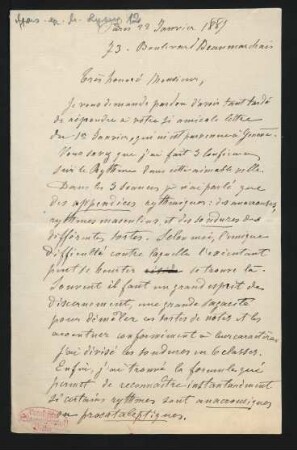 Paris 22 Janvier 1885
73. Boulevard Beaumarchais
Très honoré Monsieur,
Je vous demande pardon d'avoir tant tardé
de répondre à votre si amicale lettre
du 1er Janvier, qui m'est parvenue à Genève.
Vous savez que j'ai fait 3 conférences
sur le Rythme dans cette aimable ville.
Dans les 3 séances j'ai parlé que
des appendices rythmiques: des anacrouses,
rythmes masculins, et des soudures de
différentes sortes. Selon moi, l'unique
difficulté contre laquelle l'exécutant
peut se heurter se trouve là.
Souvent il faut un grand esprit de
discernement, une grande sagacité
pour démêler ces sortes de notes et les
accentuer conformément à leur caractère.
J'ai divisé les soudures en 6 classes.
Enfin, j'ai trouvé la formule qui
permet de reconnaître instantanément
si certains rythmes sont anacrousiques
ou procataleptiques.